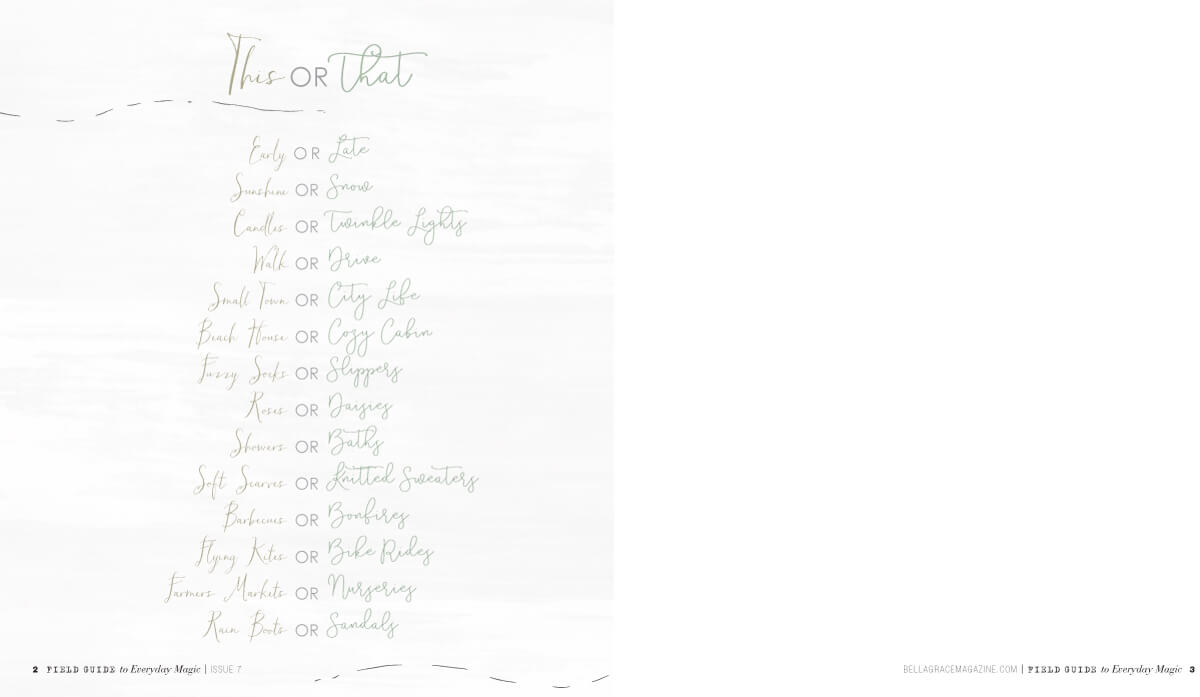 This OR That
Early OR Late
Sunshine OR Snow
Candles OR Twinkle Lights
Walk OR Drive
Small Town OR City Life
Beach House OR Cozy Cabin
Fuzzy Socks OR Slippers
Roses OR Daisies
Showers OR Baths
Soft Scarves OR Knitted Sweaters
Barbecues OR Bonfires
Flying Kites OR Bike Rides
Farmers Markets OR Nurseries
Rain Boots OR Sandals
2 FIELD GUIDE to Everyday Magic | ISSUE 7
BELLAGRACEMAGAZINE.COM | FIELD GUIDE to Everyday Magic 3